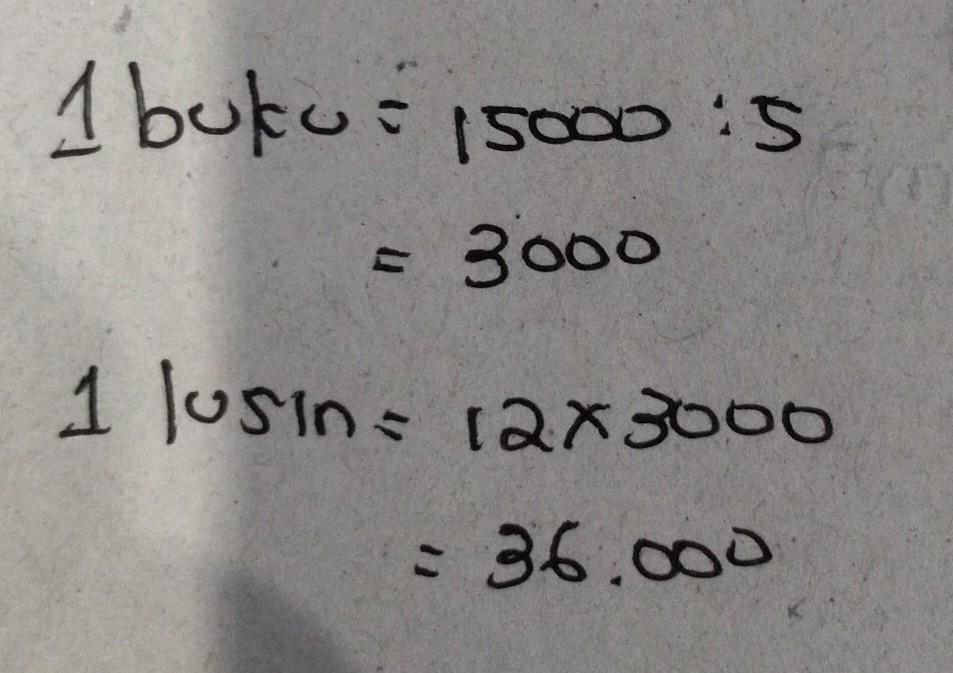 1 buku = 15000 : 5
= 3000
1 lusin = 12 x 3000
= 36.000